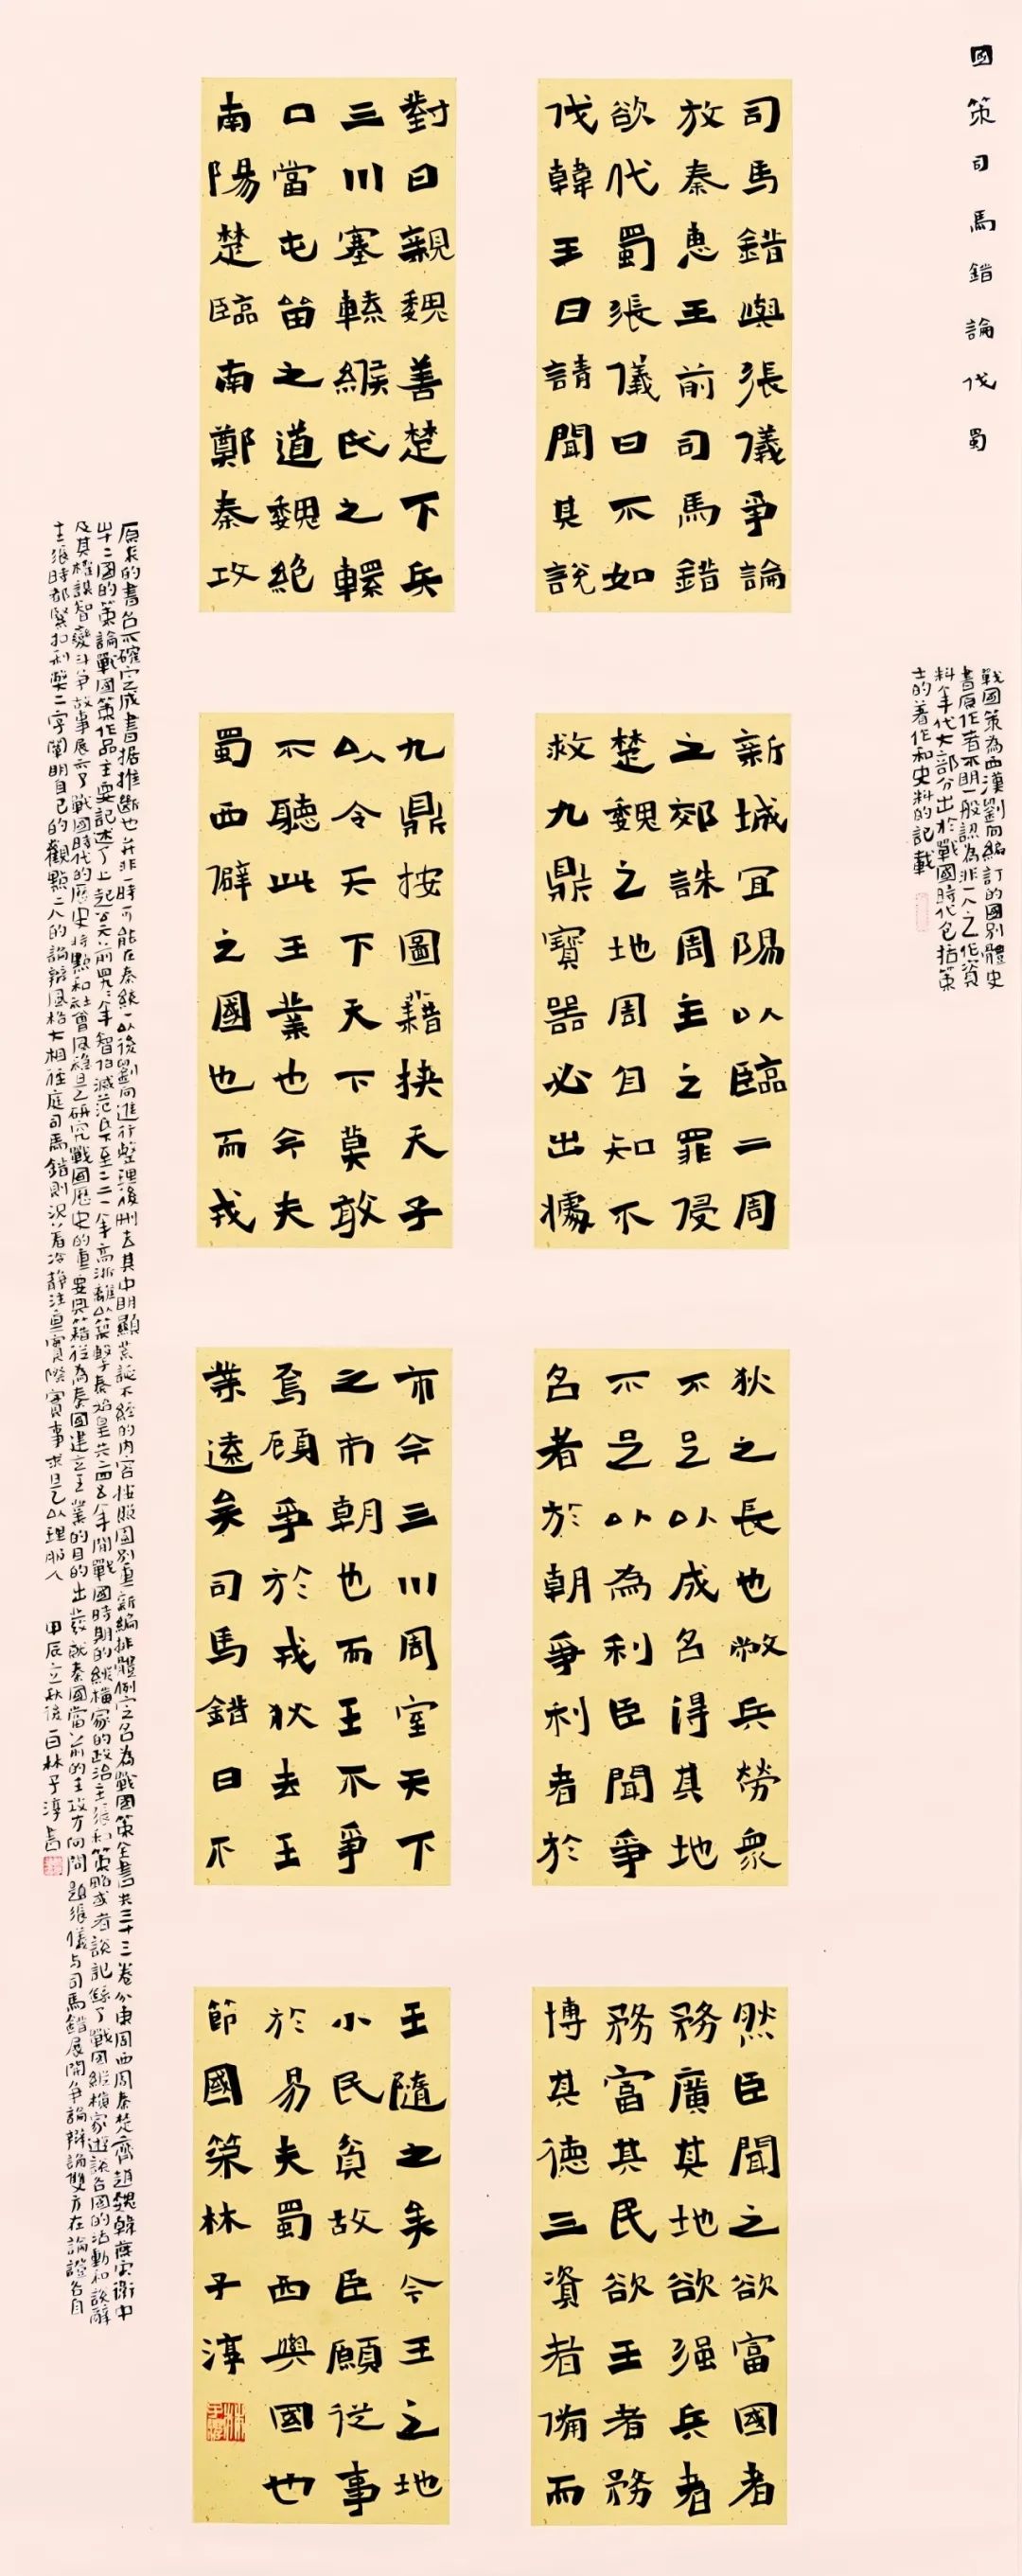 國策司馬錯論伐蜀
戰國策為西漢劉向編訂的國別體史
書原作者不明一般認為非一人之作資
料年代大部分出於戰國時代包括策
士的著作和史料的記載
司馬錯與張儀爭論
於秦惠王前司馬錯
欲伐蜀張儀曰不如
伐韓王曰請聞其說
對曰親魏善楚下兵
三川塞轘緱氏之轘
口當屯留之道魏絕
南陽楚臨南鄭秦攻
新城宜陽以臨二周
之郊誅周主之罪侵
楚魏之地周自知不
救九鼎寶器必出據
九鼎按圖籍挾天子
以令天下天下莫敢
不聽此王業也今夫
蜀西僻之國也而戎
狄之長也敝兵勞眾
不足以成名得其地
不足以為利臣聞爭
名者於朝爭利者於
市今三川周室天下
之市朝也而王不爭
焉顧爭於戎狄去王
業遠矣司馬錯曰不
然臣聞之欲富國者
務廣其地欲強兵者
務富其民欲王者務
博其德三資者備而
王隨之矣今王之地
小民貧故臣願從事
於易夫蜀西與國也
節國策林子淳
原來的書名不確定成書據推斷也并非一時可能在秦統一以後劉向進行整理後刪去其中明顯荒誕不經的內容按照國別重新編排體例定名為戰國策全書共三十三卷分東周西周秦楚齊趙魏韓燕宋衛中
山十二國的策論戰國策作品主要記述了上起公元前四九〇年智伯滅范氏下至二二一年高漸離以筑擊秦始皇共二四五年間戰國時期的縱橫家的政治主張和策略或者說記錄了戰國縱橫家遊說各國的活動和說辭
及其權謀智變斗爭故事展示了戰國時代的歷史特點和社會風貌是研究戰國歷史的重要典籍從為秦國建立王業的目的出發就秦國當前的主攻方向問題張儀與司馬錯展開爭論辯論雙方在論證各自
主張時都緊扣利弊二字闡明自己的觀點二人的論辯風格大相徑庭司馬錯則沉著冷靜注重實際實事求是以理服人 甲辰立秋後一日林子淳書